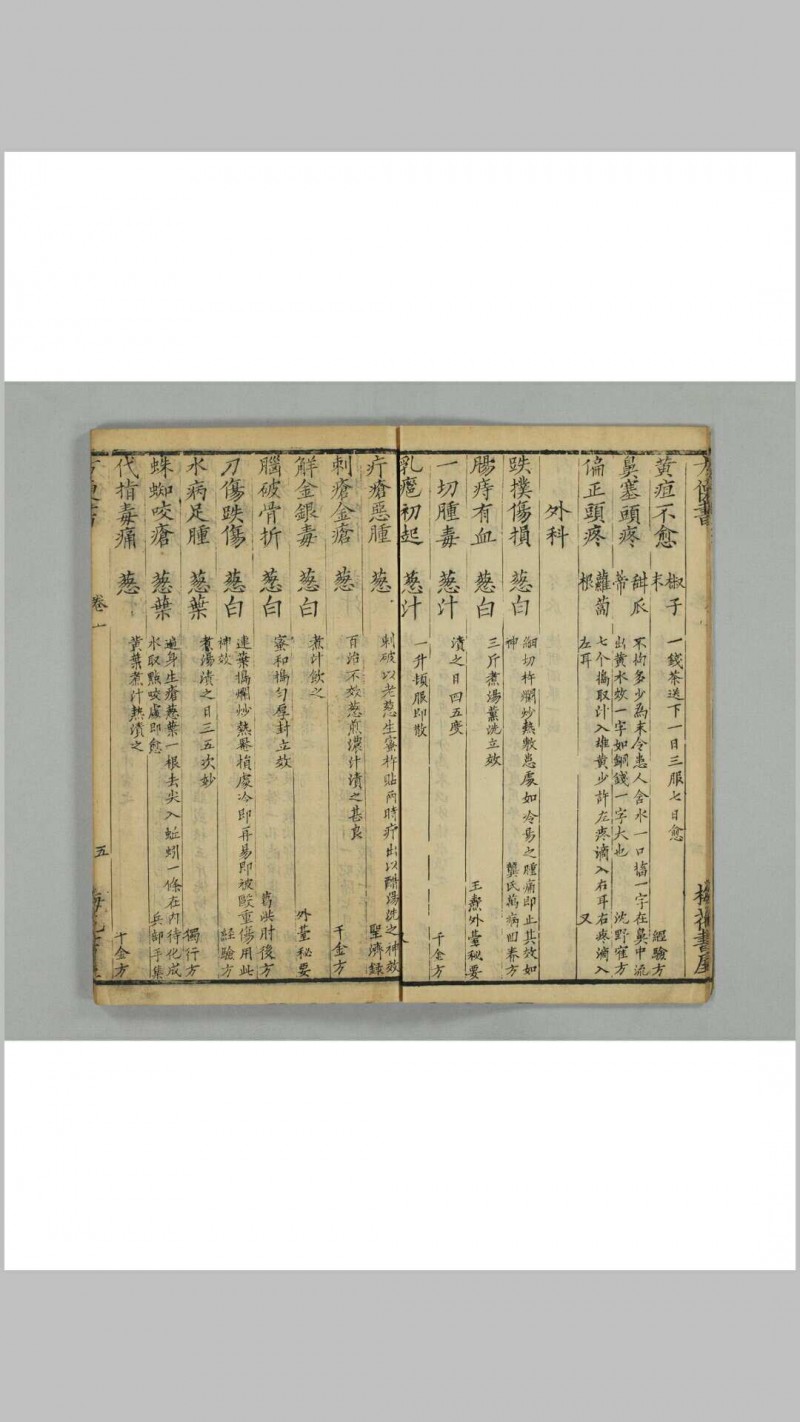 方便書
梅花書屋
黃疸不愈 椒子末 一錢茶送下一日三服七日愈 經驗方
鼻塞頭疼 甜瓜蒂 不拘多少為末令患人含水一口搐一字在鼻中流出黃水效一字如銅錢一字大也 沈野寉方
偏正頭疼 蘿蔔根 七个搗取汁入雄黃少許左疼滴入右耳右疼滴入左耳 又
外科
跌撲傷損 葱白 細切杵爛炒熱敷患處如冷易之腫痛即止其效如神 龔氏萬病回春方
腸痔有血 葱白 三斤煮湯薰洗立效 王燾外臺秘要
一切腫毒 葱汁 漬之日四五度 千金方
乳癰初起 葱汁 一升頓服即散
疔瘡惡腫 葱 刺破以老葱生蜜杵貼兩時疔出以醋湯洗之神效 聖濟錄
刺瘡金瘡 葱 百治不效葱煎濃汁漬之甚良 千金方
解金銀毒 葱白 煮汁飲之 外臺秘要
腦破骨折 葱白 蜜和搗匀厚封立效 葛洪肘後方
刀傷跌傷 葱白 連葉搗爛炒熱罨損處冷即再易即被毆重傷用此神效 經驗方
水病足腫 葱葉 煮湯漬之日三五次妙 獨行方
蛛蜘咬瘡 葱葉 遍身生瘡葱葉一根去尖入蚯蚓一條在內待化成水取點咬處即愈 兵部手集
代指毒痛 葱 黃葉煮汁熱漬之 千金方
卷一
五